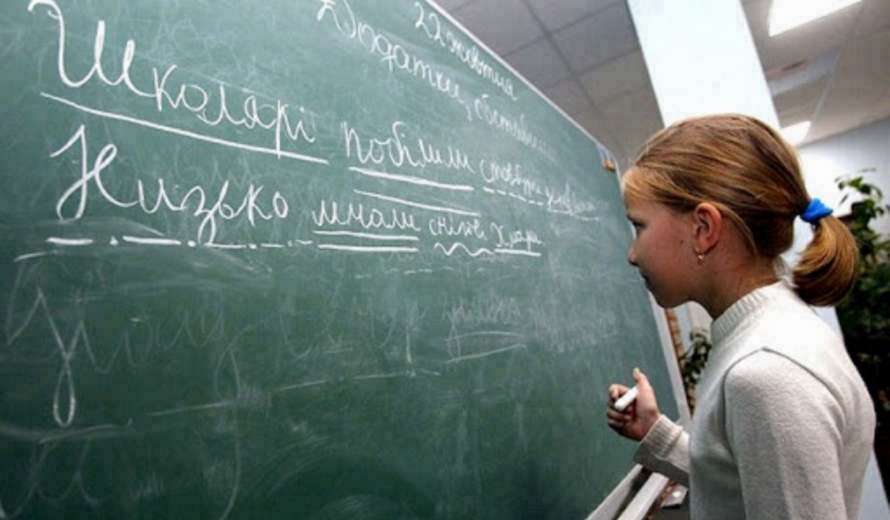 22 жовтня
Додатки, обставини
Школярі побілили стовбури
Низько мчали сніжні хмари